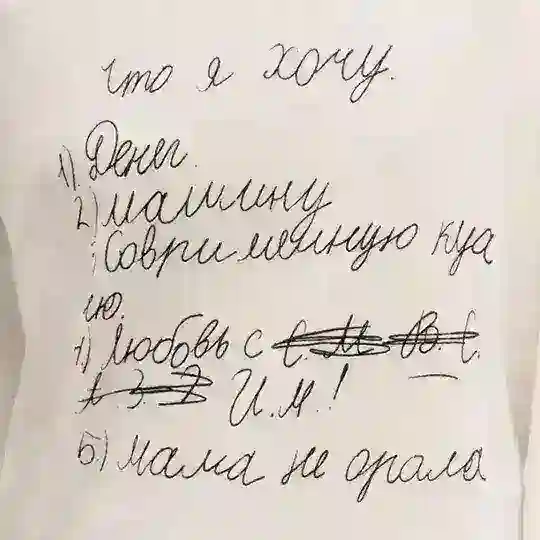 что я хочу.
1). Денег.
2) машину
Совримменную куа
ю.
4) Любовь с С. М В. С.
А. З. Д И.М.!
5) мама не орала